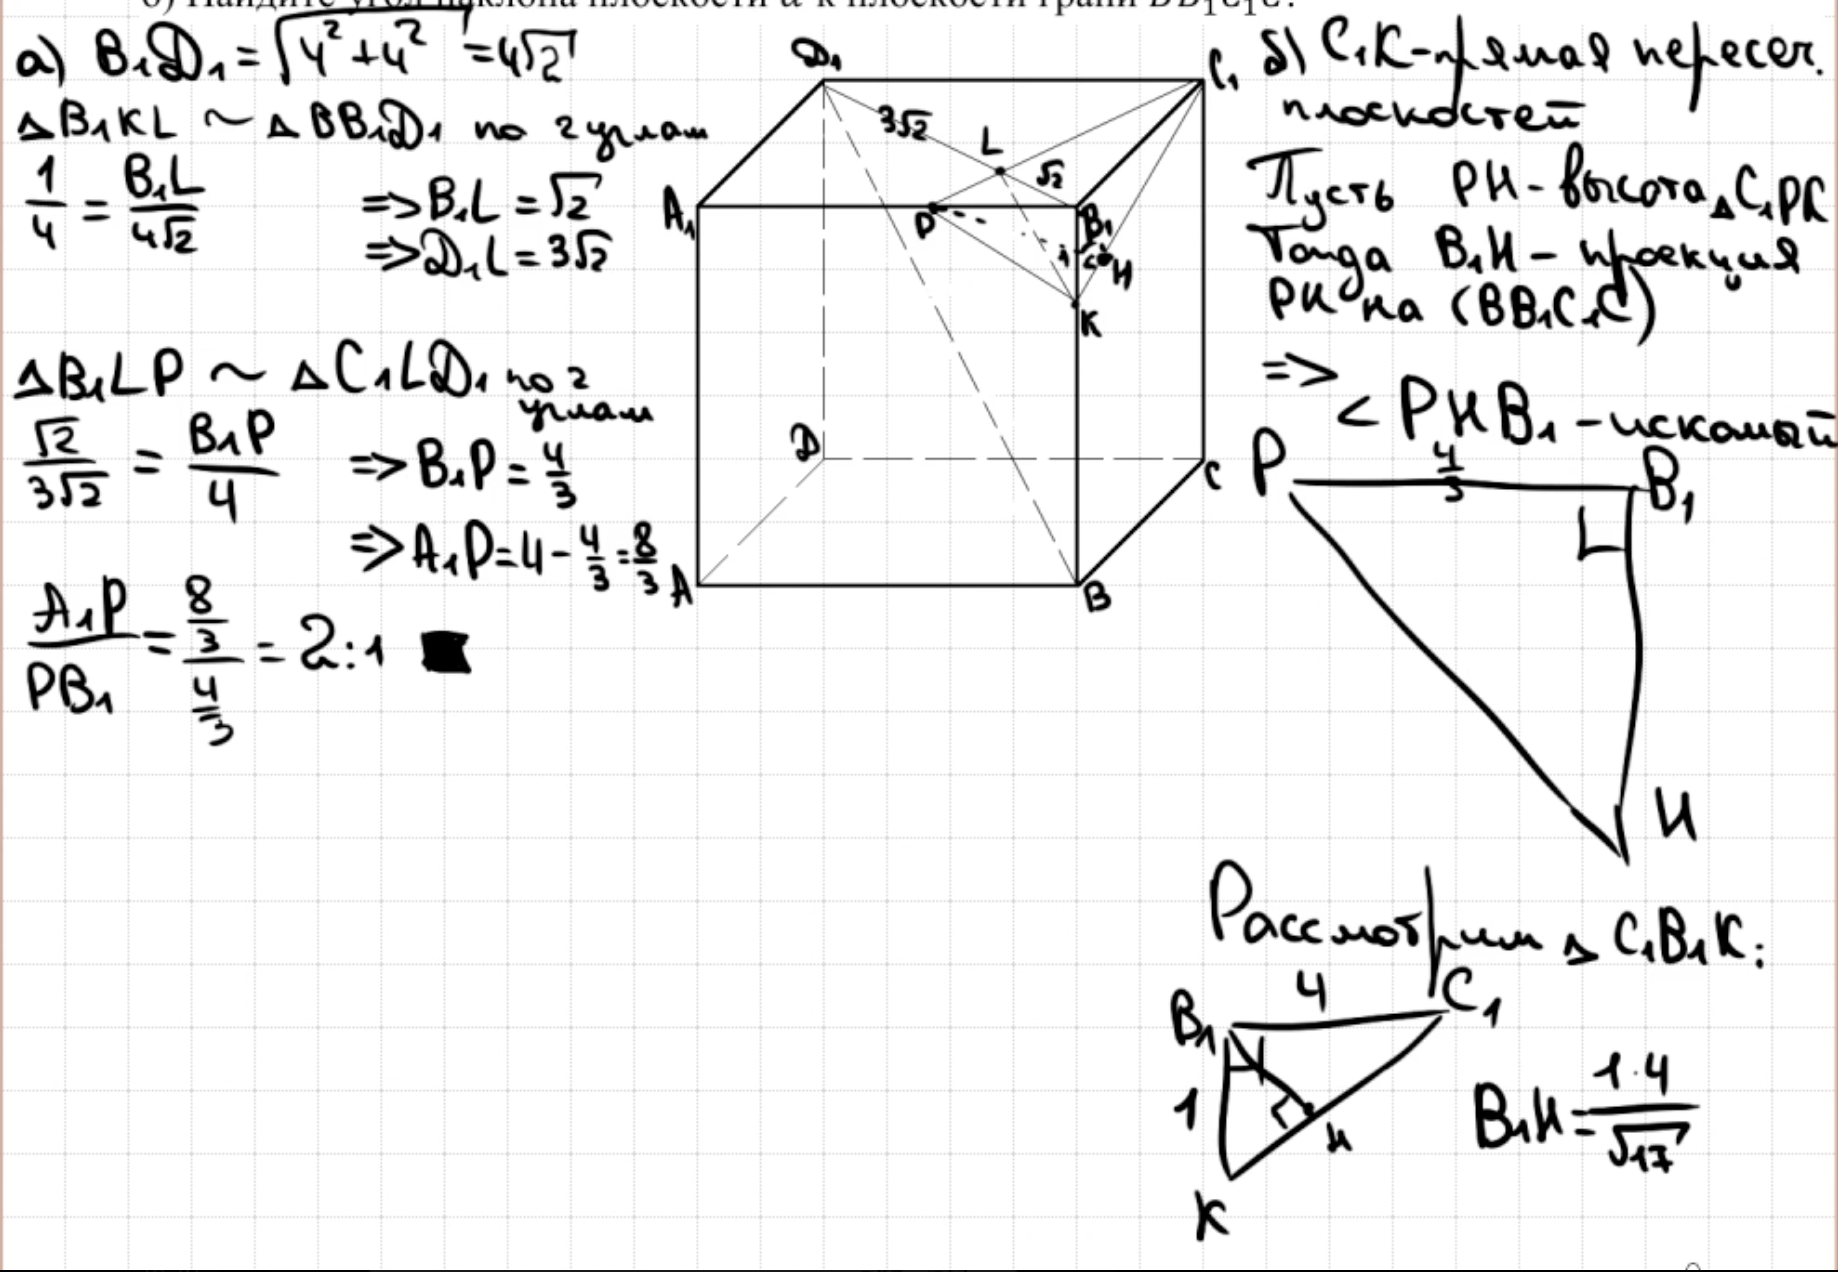 б) Найдите угол наклона плоскости α к плоскости грани BB₁C₁C.
а) B₁D₁ = √(4² + 4²) = 4√2
△B₁KL ~ △BB₁D₁ по 2 углам
1/4 = B₁L/4√2 => B₁L = √2
=> D₁L = 3√2
△B₁LP ~ △C₁LD₁ по 2 углам
√2/3√2 = B₁P/4 => B₁P = 4/3
=> A₁P = 4 - 4/3 = 8/3
A₁P/PB₁ = (8/3)/(4/3) = 2:1 ■
D₁
C₁
3√2
L
√2
A₁
P
B₁
H
K
D
C
A
B
б) C₁K - прямая пересеч.
плоскостей
Пусть PH - высота △C₁PK
Тогда B₁H - проекция
PH на (BB₁C₁C)
=>
< PHB₁ - искомый
P 4/3 B₁
H
Рассмотрим △ C₁B₁K:
B₁ 4 C₁
1
H
K
B₁H = 1·4/√17